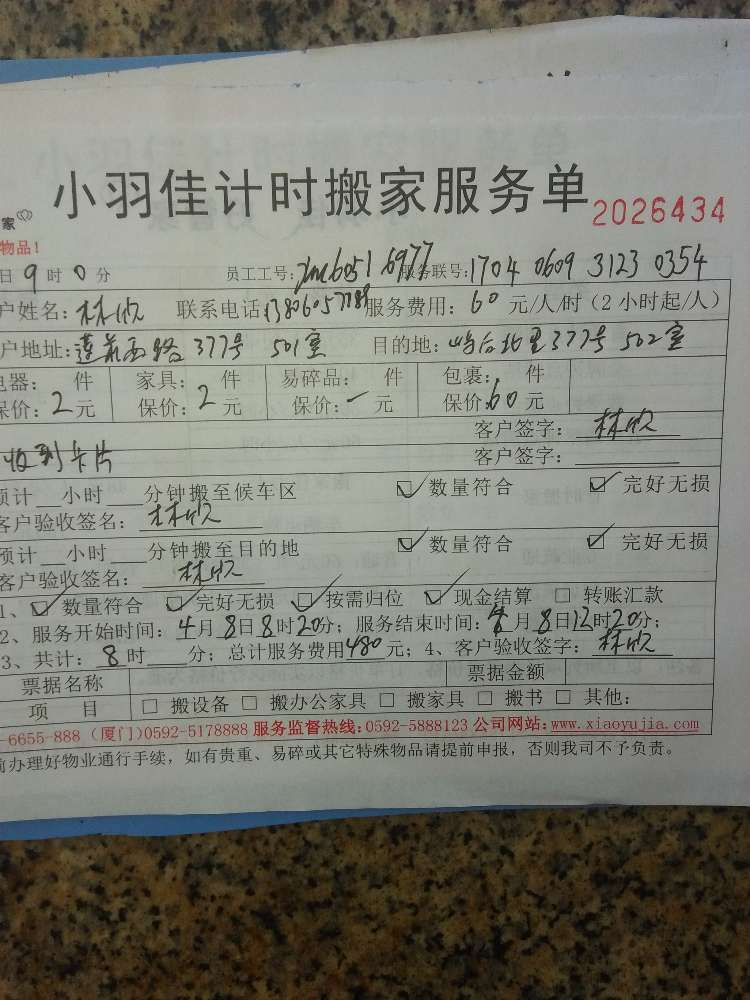 小羽佳计时搬家服务单 2026434
家
物品！
日 9 时 0 分 员工工号: 服务联号: 1704 0609 3123 0354
户姓名: 林欣 联系电话: 服务费用: 60 元/人/时（2小时起/人）
户地址: 莲前西路 377号 501室 目的地: 后北里377号 502室
电器: 件 家具: 件 易碎品: 件 包裹: 件
保价: 2元 保价: 2 元 保价: — 元 保价: 60 元
客户签字: 林欣
收到卡片 客户签字:
预计__小时___分钟搬至候车区 ☑ 数量符合 ☑ 完好无损
客户验收签名: 林欣
预计__小时___分钟搬至目的地 ☑ 数量符合 ☑ 完好无损
客户验收签名: 林欣
1、☑ 数量符合 ☑ 完好无损 ☑ 按需归位 ☑ 现金结算 □ 转账汇款
2、服务开始时间: 4月8日8时20分; 服务结束时间: 月8日12时20分;
3、共计: 8 时___分; 总计服务费用480元; 4、客户验收签字: 林欣
票据名称 票据金额
项 目 □ 搬设备 □ 搬办公家具 □ 搬家具 □ 搬书 □ 其他:
-6655-888 (厦门)0592-5178888 服务监督热线:0592-5888123 公司网站: www.xiaoyujia.com
前办理好物业通行手续，如有贵重、易碎或其它特殊物品请提前申报，否则我司不予负责。